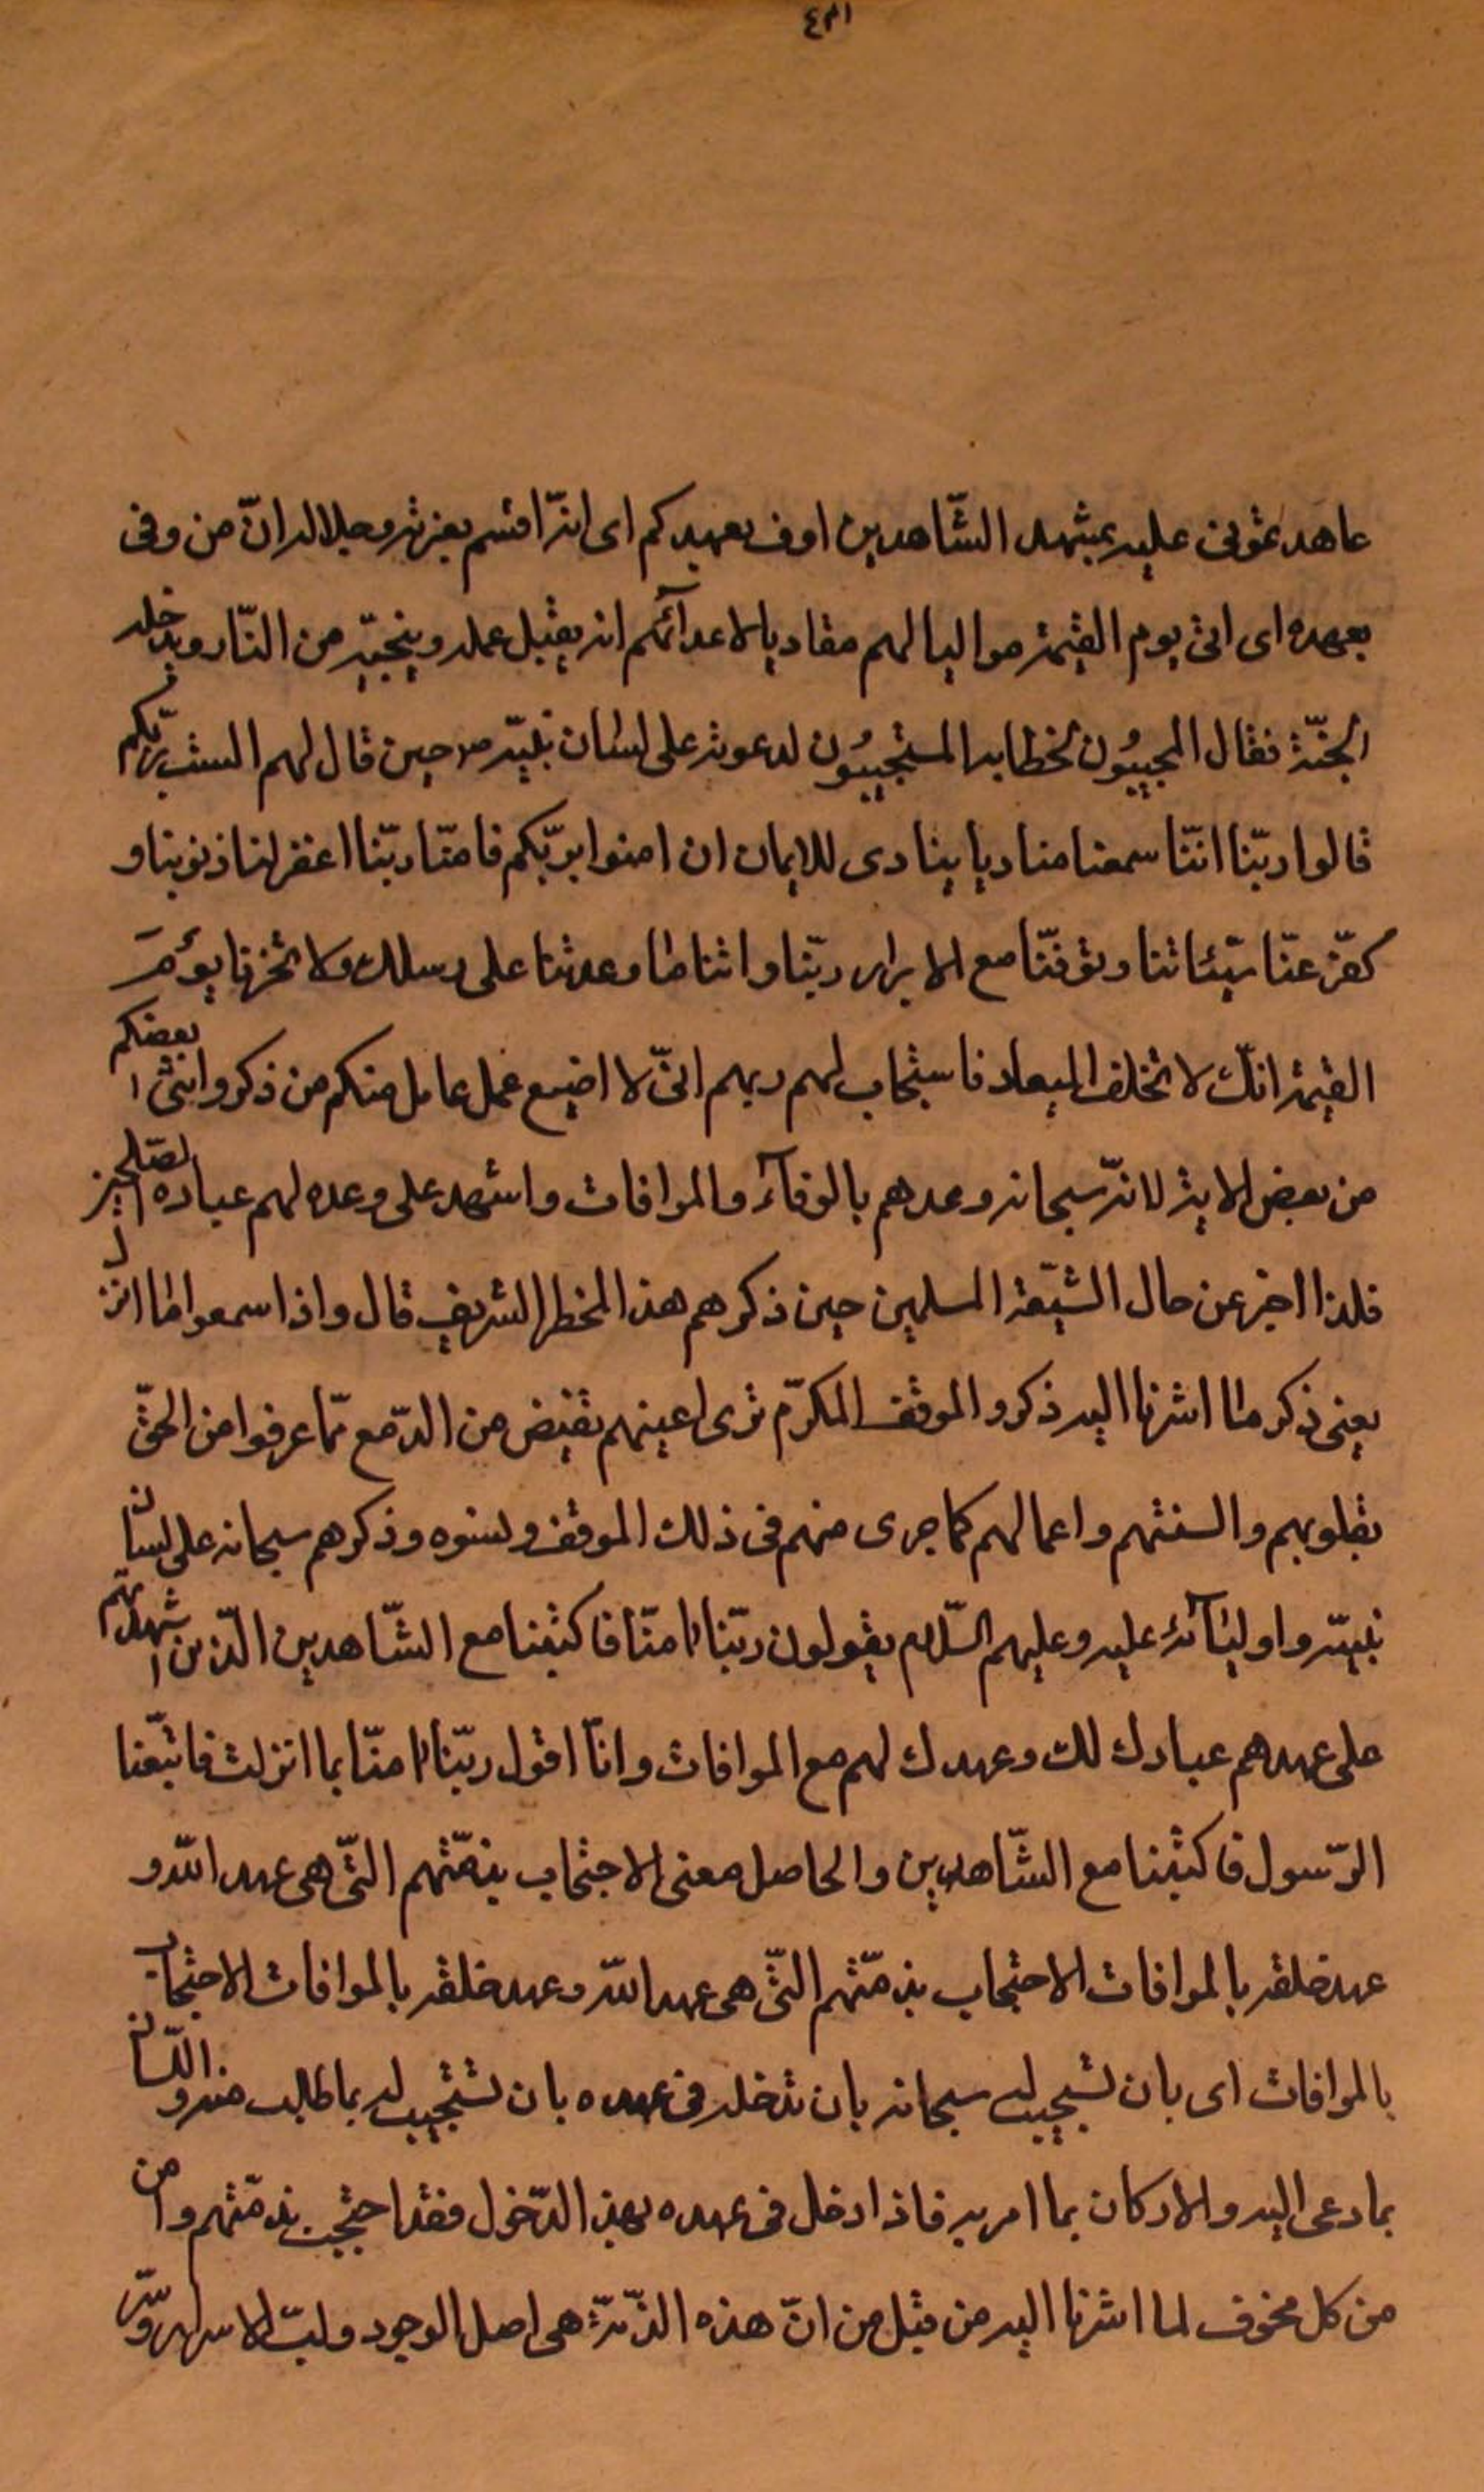 عاهدتمونى عليه بمشهد الشّاهدين اوف بعهدكم اى انّه اقسم بعزته وجلاله انّ من وفى
بعهده اى اتى يوم القيمة مواليا لهم معاديا لاعدآئهم انه يقبل عمله وينجيّه من النّار ويدخله
الجنّة فقال المجيبُون لخطابه المستجيبُون لدعوته على لسان نبيّه ص حين قال لهم الست بربّكم
قالوا ربّنا انّنا سمعنا مناديا ينادى للايمان ان امنوا بربّكم فامنّا ربّنا اغفر لنا ذنوبنا و
كفّر عنّا سيّئاتنا وتوفّنا مع الابرار ربّنا واتنا ما وعدتنا على رسلك ولا تخزنا يوم
القيمة انّك لا تخلف الميعاد فاستجاب لهم ربهم انّى لا اضيع عمل عامل منكم من ذكر وانثى بعضكم
من بعض الاية لانّه سبحانه وعدهم بالوفآء والموافات واشهد على وعده لهم عباده الصّالحين
فلذا اخبر عن حال الشّيعة المسلمين حين ذكرهم هذا الخطر الشريف قال واذا سمعوا ما انزل
يعنى ذكر ما اشرنا اليه ذكروا الموقف المكرّم ترى اعينهم تفيض من الدّمع ممّا عرفوا من الحقّ
بقلوبهم والسنتهم واعمالهم كما جرى منهم فى ذلك الموقف ونسوه وذكرهم سبحانه على لسان
نبيّه واوليآئه عليه وعليهم السّلام يقولون ربّنا امنّا فاكتبنا مع الشّاهدين الّذين اشهدتهم
على عهدهم عبادك لك وعهدك لهم مع الموافات وانّا اقول ربّنا امنّا بما انزلت فاتبّعنا
الرّسول فاكتبنا مع الشّاهدين والحاصل معنى الاحتجاب بذمّتهم الّتى هى عهد اللّه و
عهد خلقه بالموافات الاحتجاب بذمّتهم الّتى هى عهد اللّه وعهد خلقه بالموافات الاحتجاب
بالموافات اى بان تستجيب له سبحانه بان تدخل فى عهده بان تستجيب له بما طلب منه واللّسان
بما دعى اليه والاركان بما امر به فاذا دخل فى عهده بهذ الدّخول فقد احتجب بذمّتهم وامن
من كل مخوف لما اشرنا اليه من قبل من انّ هذه الذّمّة هى اصل الوجود